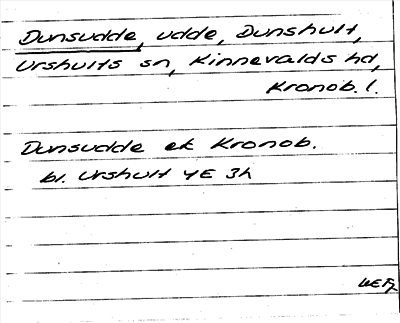 Dunsudde, udde, Dunshult,
Urshults sn, Kinnevalds hd,
Kronob. l.
Dunsudde ek Kronob.
bl. Urshult 4E 3h